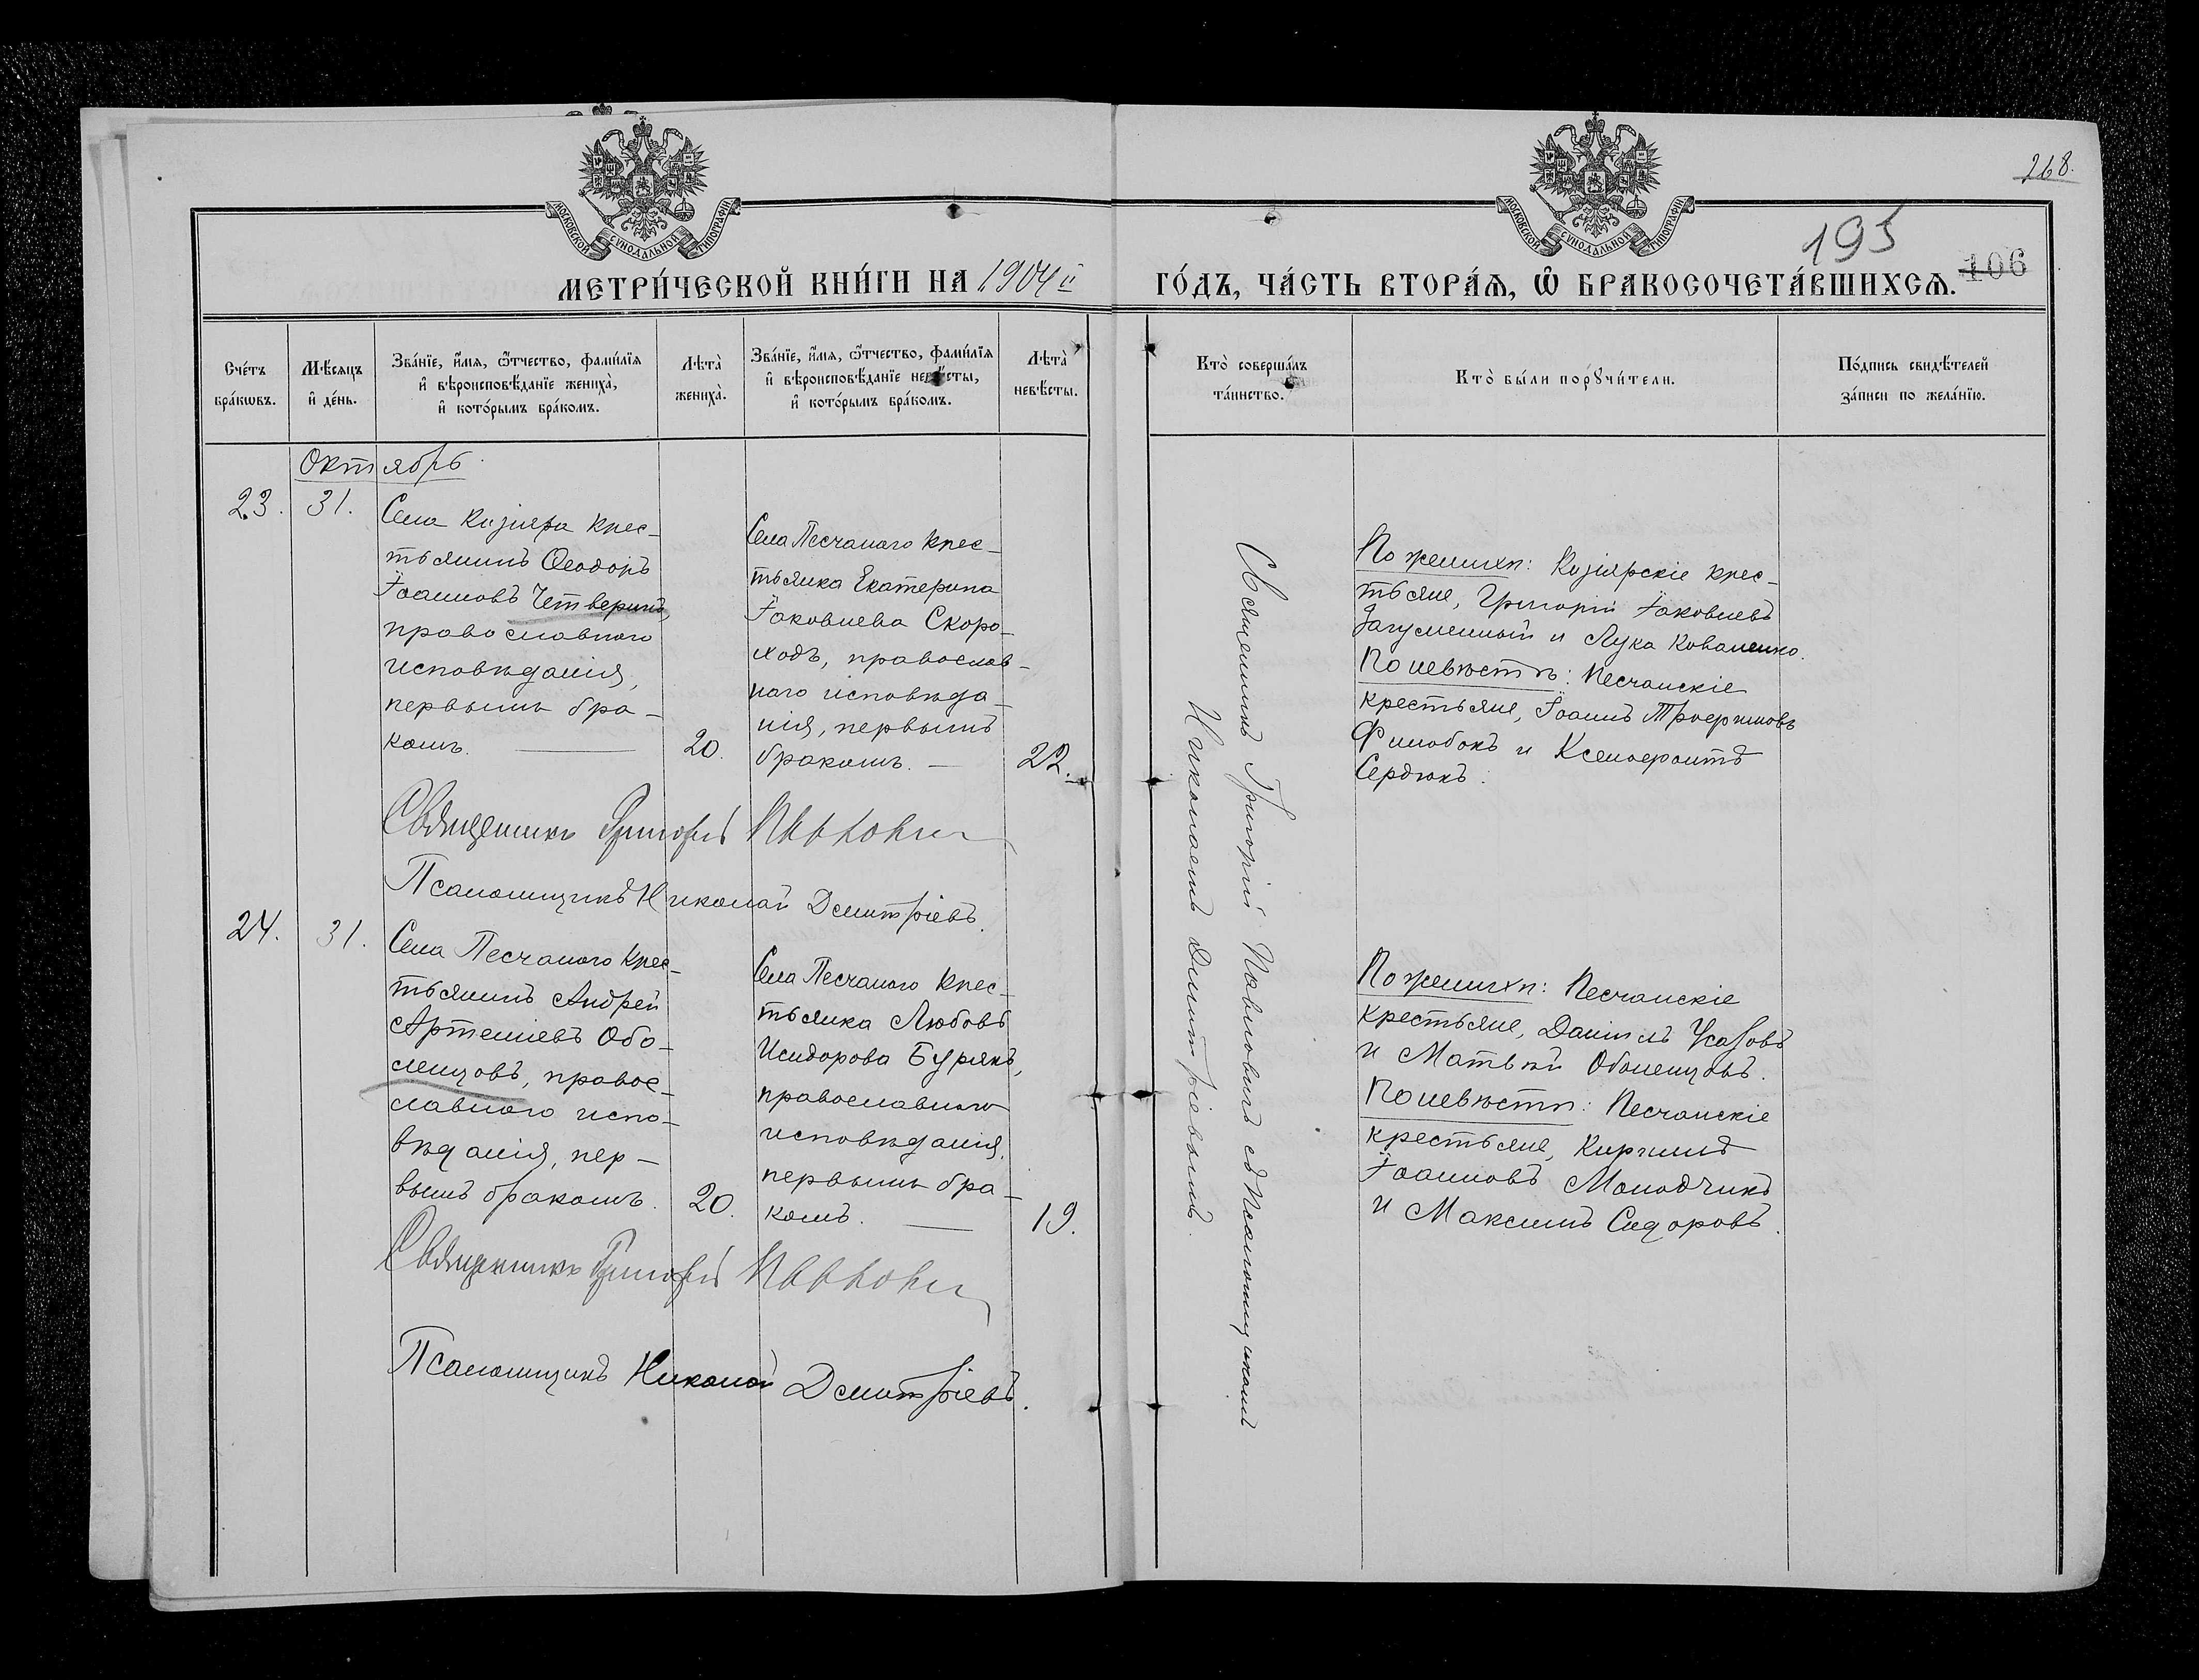 268.
195
106
МОСКОВСКОЙ СѴНОДАЛЬНОЙ ТИПОГРАФІИ
МОСКОВСКОЙ СѴНОДАЛЬНОЙ ТИПОГРАФІИ
МЕТРИ́ЧЕСКОЙ КНИ́ГИ НА 1904й ГО́ДЪ, ЧА́СТЬ ВТОРА́Ѧ, Ѽ БРАКОСОЧЕТА́ВШИХСѦ.
Сче́тъ бра́кѡвъ.
Мѣ́сѧцъ и҆ де́нь.
Зва́нїе, и҆́мѧ, ѻ҆́тчество, фами́лїѧ
и҆ вѣроисповѣ́данїе жениха̀,
и҆ кото́рымъ бра́комъ.
Лѣта̀ жениха̀.
Зва́нїе, и҆́мѧ, ѻ҆́тчество, фами́лїѧ
и҆ вѣроисповѣ́данїе невѣ́сты,
и҆ кото́рымъ бра́комъ.
Лѣта̀ невѣ́сты.
Кто̀ соверша́лъ
та́инство.
Кто̀ бы́ли порꙋчи́тели.
По́дпись свидѣ́телей
за́писи по жела́нїю.
Октябрь.
23.
31.
Села Кизіяра крес-
тьянинъ Ѳеодоръ
Іоанновъ Четверикъ,
православнаго
исповѣданія,
первымъ бра-
комъ.
20.
Села Песчанаго крес-
тьянка Екатерина
Іаковлева Скоро-
ходъ, православ-
наго исповѣда-
нія, первымъ
бракомъ.
22.
Священникъ Григорій Павловичъ съ псаломщикомъ
Николаемъ Димитріевымъ.
По женихѣ: Кизіярскіе крес-
тьяне, Григорій Іаковлевъ
Загуменный и Лука Коваленко.
По невѣстѣ: Песчанскіе
крестьяне, Іоаннъ Трофимовъ
и Ксенофонтъ
Сердюкъ.
Священникъ Григорій Павловичъ
Псаломщикъ Николай Дмитріевъ.
24.
31.
Села Песчанаго крес-
тьянинъ Андрей
Артеміевъ Обо-
ленцовъ, правос-
лавнаго испо-
вѣданія, пер-
вымъ бракомъ.
20.
Села Песчанаго крес-
тьянка Любовь
Исидорова Бурякъ,
православнаго
исповѣданія,
первымъ бра-
комъ.
19.
По женихѣ: Песчанскіе
крестьяне, Даніилъ Усаговъ
и Матѳѣй Оболенцовъ.
По невѣстѣ: Песчанскіе
крестьяне, Кириллъ
Іоанновъ Молодчикъ
и Максимъ Сидоровъ.
Священникъ Григорій Павловичъ
Псаломщикъ Николай Дмитріевъ.